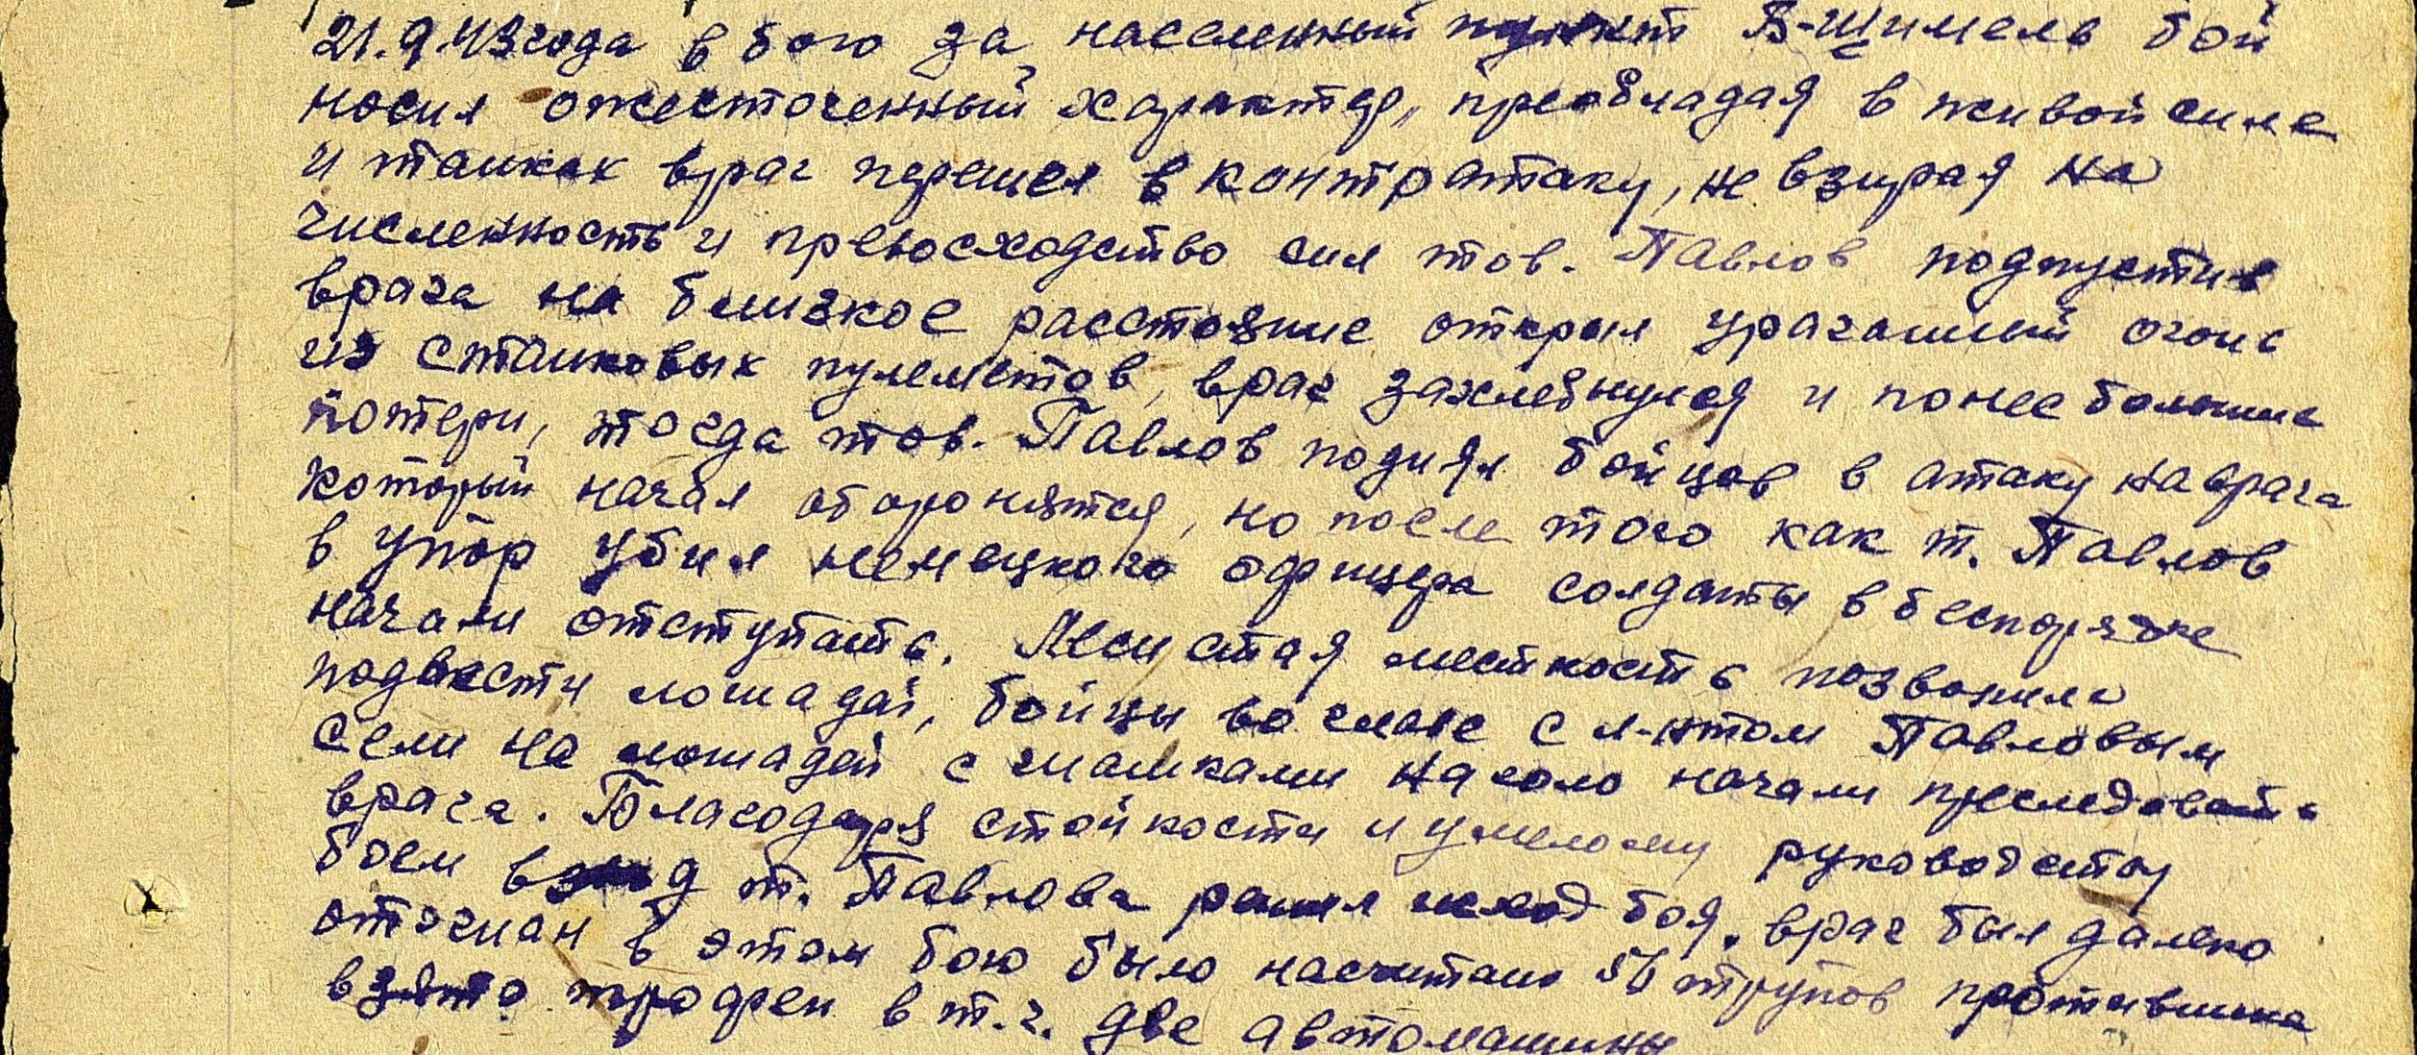 21.9.43 года в бою за населенный пункт В-Щимель бой
носил ожесточенный характер, преобладая в живой силе
и танках враг перешел в контратаку, не взирая на
численность и превосходство сил тов. Павлов подпустив
врага на близкое расстояние открыл ураганный огонь
из станковых пулеметов, враг захлебнулся и понес большие
потери, тогда тов. Павлов поднял бойцов в атаку на врага
который начал оборонятся, но после того как т. Павлов
в упор убил немецкого офицера солдаты в беспорядке
начали отступать. Лесистая местность позволила
подвести лошадей, бойцы во главе с л-нтом Павловым
сели на лошадей с шашками наголо начали преследовать
врага. Благодаря стойкости и умелому руководству
боем взвод т. Павлова решил исход боя, враг был далеко
отогнан в этом бою было насчитано 56 трупов противника
взято трофеи в т.ч. две автомашины